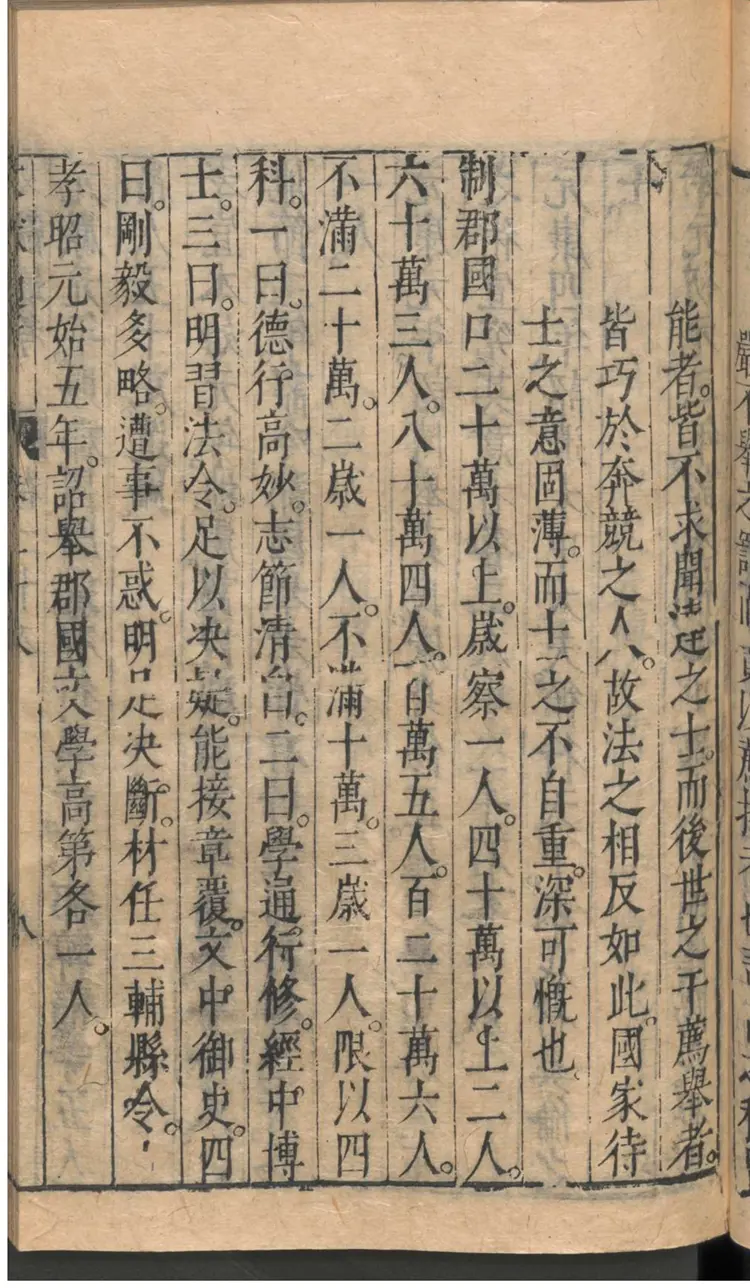 能者。皆不求聞達之士。而後世之干薦舉者。
皆巧於奔競之人。故法之相反如此。國家待
士之意固薄。而士之不自重。深可慨也。
制郡國口二十萬以上。歲察一人。四十萬以上二人。
六十萬三人。八十萬四人。百萬五人。百二十萬六人。
不滿二十萬。二歲一人。不滿十萬。三歲一人。限以四
科。一曰。德行高妙。志節清白。二曰。學通行修。經中博
士。三曰。明習法令。足以决疑。能接章覆。文中御史。四
曰。剛毅多略。遭事不惑。明足决斷。材任三輔縣令。
孝昭元始五年。詔舉郡國文學高第各一人。